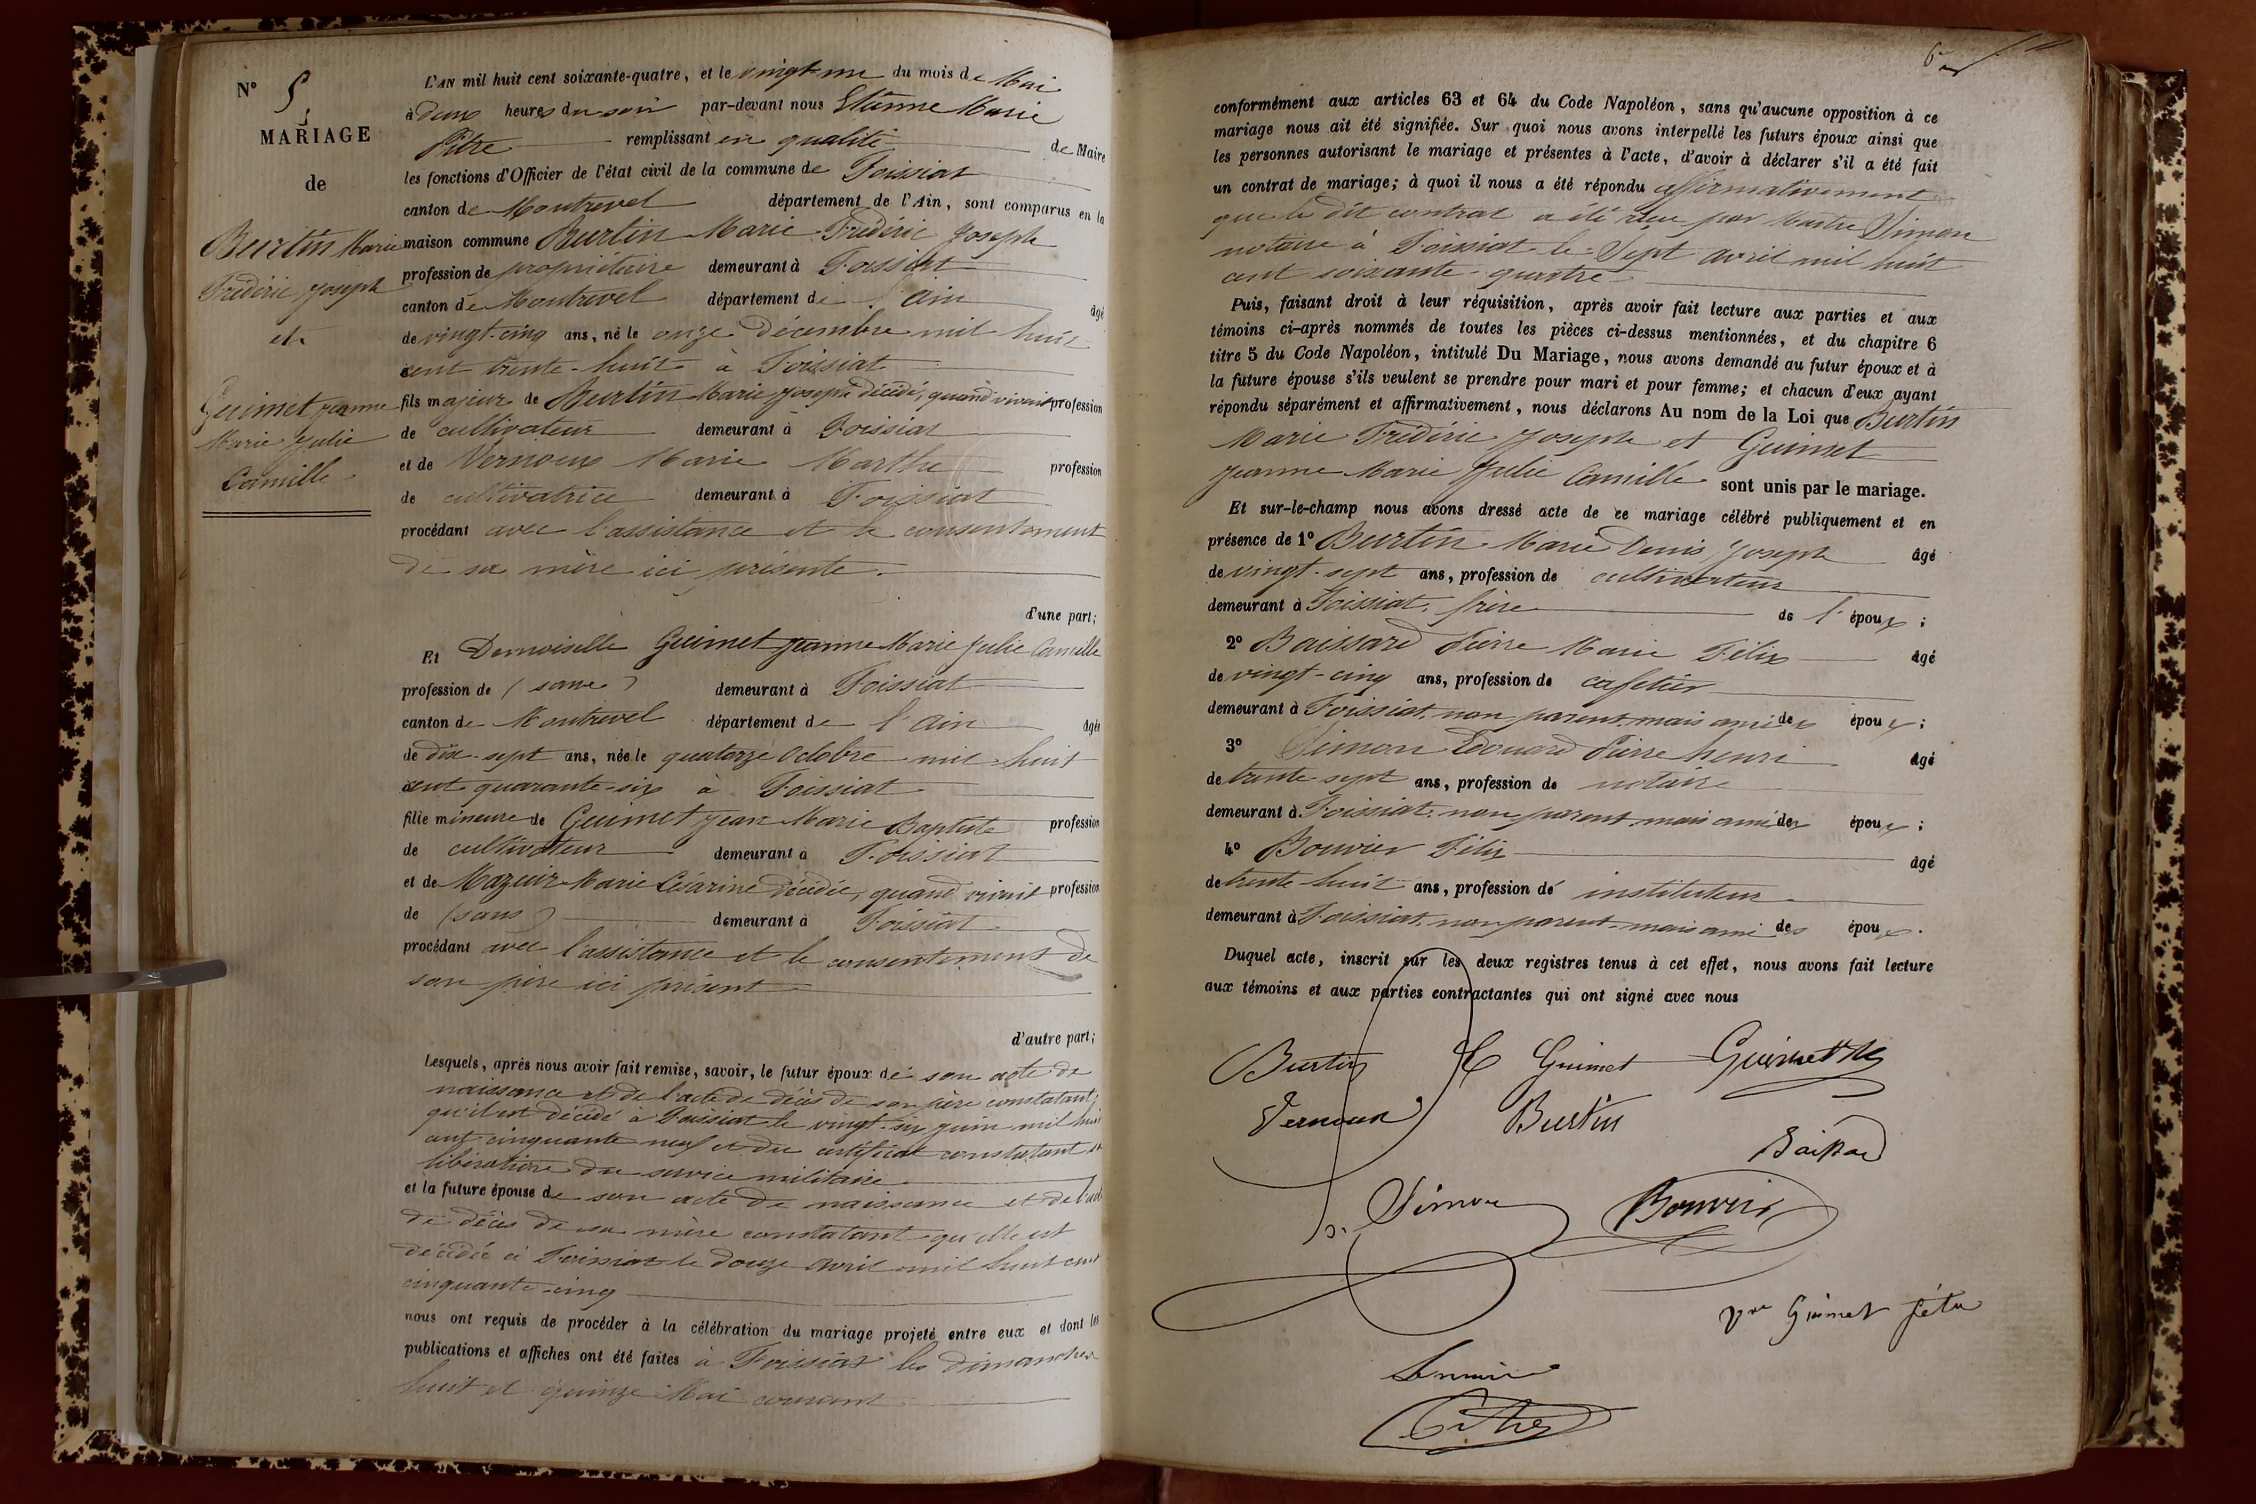 N° 5
MARIAGE
de
Burtin Marie
Frédéric Joseph
et
Guimet Jeanne
Marie Julie
Camille
L'AN mil huit cent soixante-quatre, et le vingt un du mois de Mai
à deux heures du soir par-devant nous Etienne Marie
Pitre remplissant en qualité de Maire
les fonctions d'Officier de l'état civil de la commune de Foissiat
canton de Montrevel département de l'Ain, sont comparus en la
maison commune Burtin Marie Frédéric Joseph
profession de propriétaire demeurant à Foissiat
canton de Montrevel département de l'Ain âgé
de vingt-cinq ans, né le onze décembre mil huit
cent trente-huit à Foissiat
fils majeur de Burtin Marie Joseph décédé, quand vivait profession
de cultivateur demeurant à Foissiat
et de Vernoux Marie Marthe profession
de cultivatrice demeurant à Foissiat
procédant avec l'assistance et le consentement
de sa mère ici présente.
d'une part;
Et Demoiselle Guimet Jeanne Marie Julie Camille
profession de (sans) demeurant à Foissiat
canton de Montrevel département de l'Ain âgée
de dix-sept ans, née le quatorze Octobre mil huit
cent quarante-six à Foissiat
fille mineure de Guimet Jean Marie Baptiste profession
de cultivateur demeurant à Foissiat
et de Mazuir Marie Césarine décédée, quand vivait profession
de (sans) demeurant à Foissiat
procédant avec l'assistance et le consentement de
son père ici présent
d'autre part;
Lesquels, après nous avoir fait remise, savoir, le futur époux de son acte de
naissance et de l'acte de décès de son père constatant
qu'il est décédé à Foissiat le vingt-six juin mil huit
cent cinquante neuf et du certificat constatant sa
libération du service militaire
et la future épouse de son acte de naissance et de l'acte
de décès de sa mère constatant qu'elle est
décédée à Foissiat le douze avril mil huit cent
cinquante-cinq
nous ont requis de procéder à la célébration du mariage projeté entre eux et dont les
publications et affiches ont été faites à Foissiat les dimanches
huit et quinze Mai courant
conformément aux articles 63 et 64 du Code Napoléon, sans qu'aucune opposition à ce
mariage nous ait été signifiée. Sur quoi nous avons interpellé les futurs époux ainsi que
les personnes autorisant le mariage et présentes à l'acte, d'avoir à déclarer s'il a été fait
un contrat de mariage; à quoi il nous a été répondu affirmativement
que le dit contrat a été reçu par Maitre Simon
notaire à Foissiat le Sept avril mil huit
cent soixante-quatre
Puis, faisant droit à leur réquisition, après avoir fait lecture aux parties et aux
témoins ci-après nommés de toutes les pièces ci-dessus mentionnées, et du chapitre 6
titre 5 du Code Napoléon, intitulé Du Mariage, nous avons demandé au futur époux et à
la future épouse s'ils veulent se prendre pour mari et pour femme; et chacun d'eux ayant
répondu séparément et affirmativement, nous déclarons Au nom de la Loi que Burtin
Marie Frédéric Joseph et Guimet
Jeanne Marie Julie Camille sont unis par le mariage.
Et sur-le-champ nous avons dressé acte de ce mariage célébré publiquement et en
présence de 1° Burtin Marie Denis Joseph âgé
de vingt-sept ans, profession de cultivateur
demeurant à Foissiat, frère de l'époux;
2° Baissard Pierre Marie Félix âgé
de vingt-cinq ans, profession de cafetier
demeurant à Foissiat, non parent mais ami des époux;
3° Simon Edouard Pierre henri âgé
de trente-sept ans, profession de notaire
demeurant à Foissiat, non parent mais ami des époux;
4° Bouvier Félix âgé
de trente-huit ans, profession de instituteur
demeurant à Foissiat, non parent mais ami des époux.
Duquel acte, inscrit sur les deux registres tenus à cet effet, nous avons fait lecture
aux témoins et aux parties contractantes qui ont signé avec nous
Burtin C Guimet Guimet
Vernoux Burtin
Baissard
Simon Bouvier
Guimet
Pitre